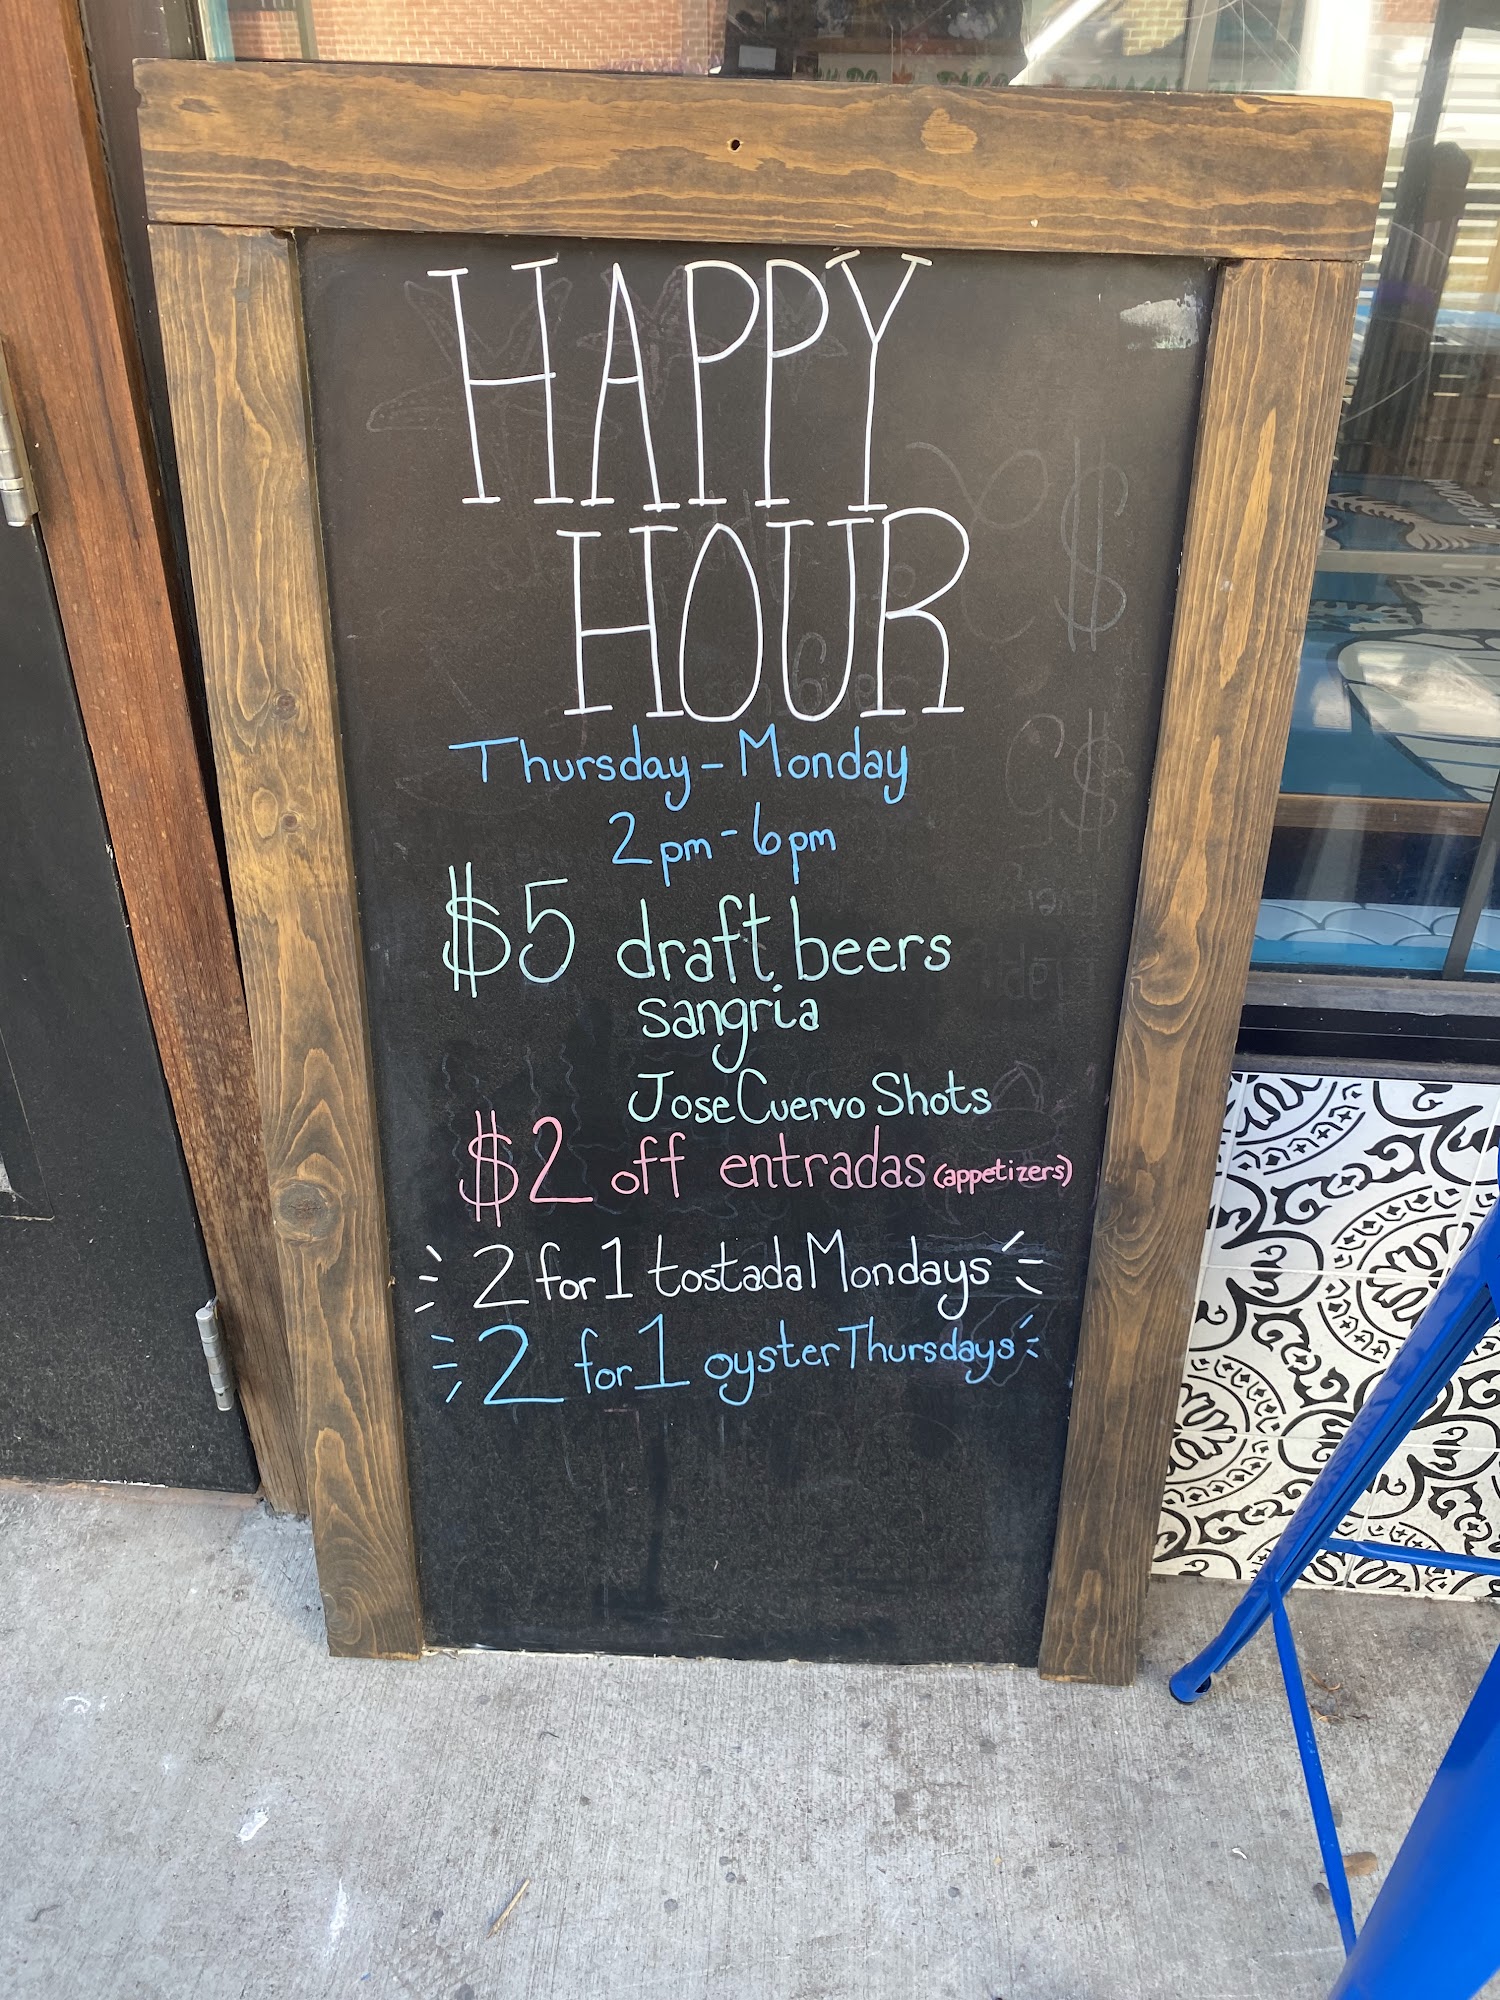 HAPPY
HOUR
Thursday - Monday
2pm - 6pm
$5 draft beers
sangria
Jose Cuervo Shots
$2 off entradas (appetizers)
2 for 1 tostada Mondays
2 for 1 oyster Thursdays